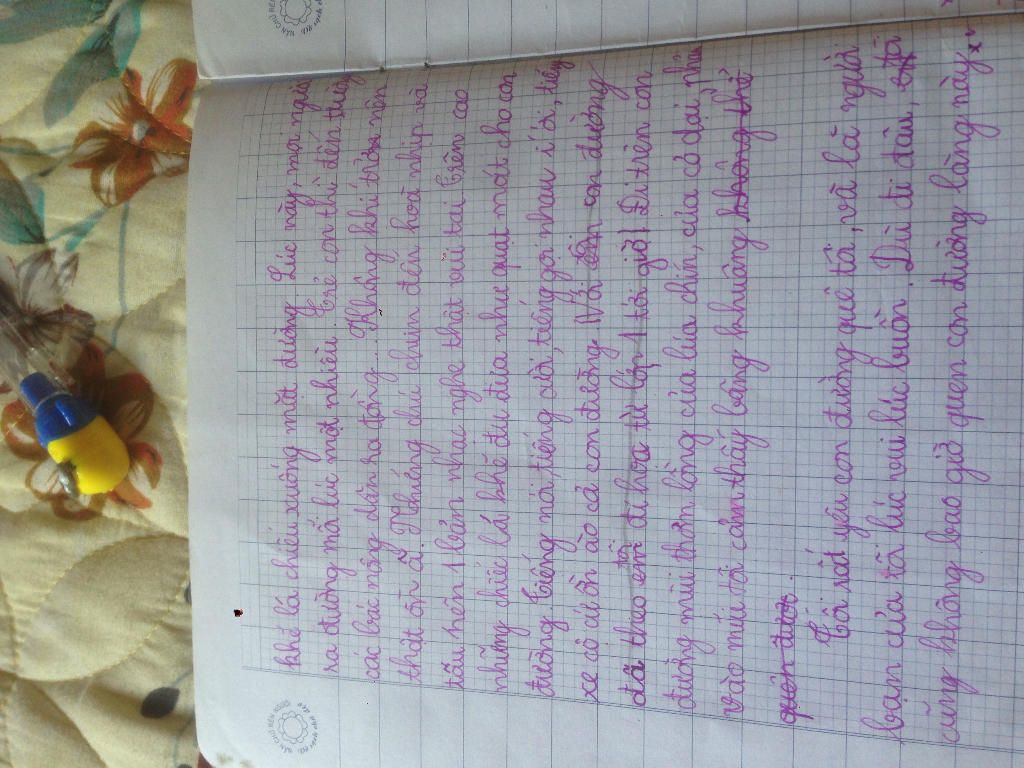 khẽ lá chiếu xuống mặt đường. Lúc này, mọi người
ra đường mỗi lúc một nhiều. Trẻ con thì đến trường
các bác nông dân ra đồng... Không khí trở nên
thật ồn ã. Những chú chim đến hoà nhịp và
tấu nên 1 bản nhạc nghe thật vui tai. Trên cao
những chiếc lá khẽ đu đưa như quạt mát cho con
đường. Tiếng nói, tiếng cười, tiếng gọi nhau í ới, tiếng
xe cộ ồn ào cả con đường. Và con đường
đã theo tôi đi học từ lớp 1 tới giờ! Đi trên con
đường mùi thơm lồng của lúa chín, của cỏ dại phả
vào mũi tôi cảm thấy bâng khuâng không thể
quên được.
Tôi rất yêu con đường quê tôi, và là người
bạn của tôi lúc vui lúc buồn. Dù đi đâu, tôi
cũng không bao giờ quen con đường làng này.